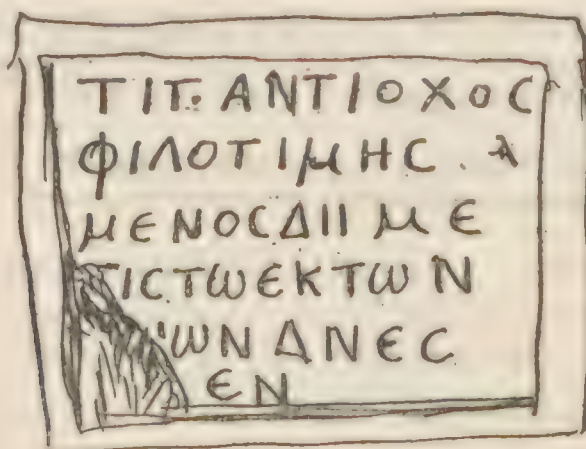 ΤΙΤ. ΑΝΤΙΟΧΟϹ
ΦΙΛΟΤΙΜΗϹ.Α
ΜΕΝΟϹΔΙΙΜΕ
ΤΙϹΤΩΕΚΤΩΝ
ΩΝΑΝΕϹ
ΕΝ